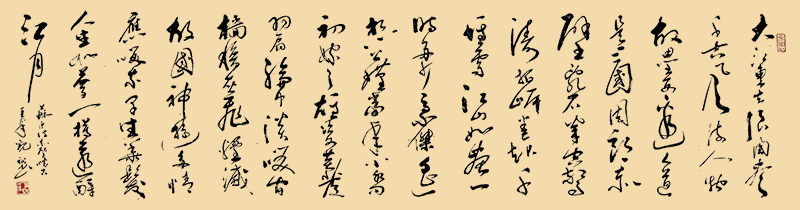 大江東去浪淘盡
千古風流人物
故壘西邊人道
是三國周郎赤
壁亂石穿空驚
濤拍岸捲起千
堆雪江山如畫一
時多少豪傑遙
想公瑾當年小喬
初嫁了雄姿英發
羽扇綸巾談笑間
檣櫓灰飛煙滅
故國神遊多情
應笑我早生華髮
人生如夢一樽還酹
江月